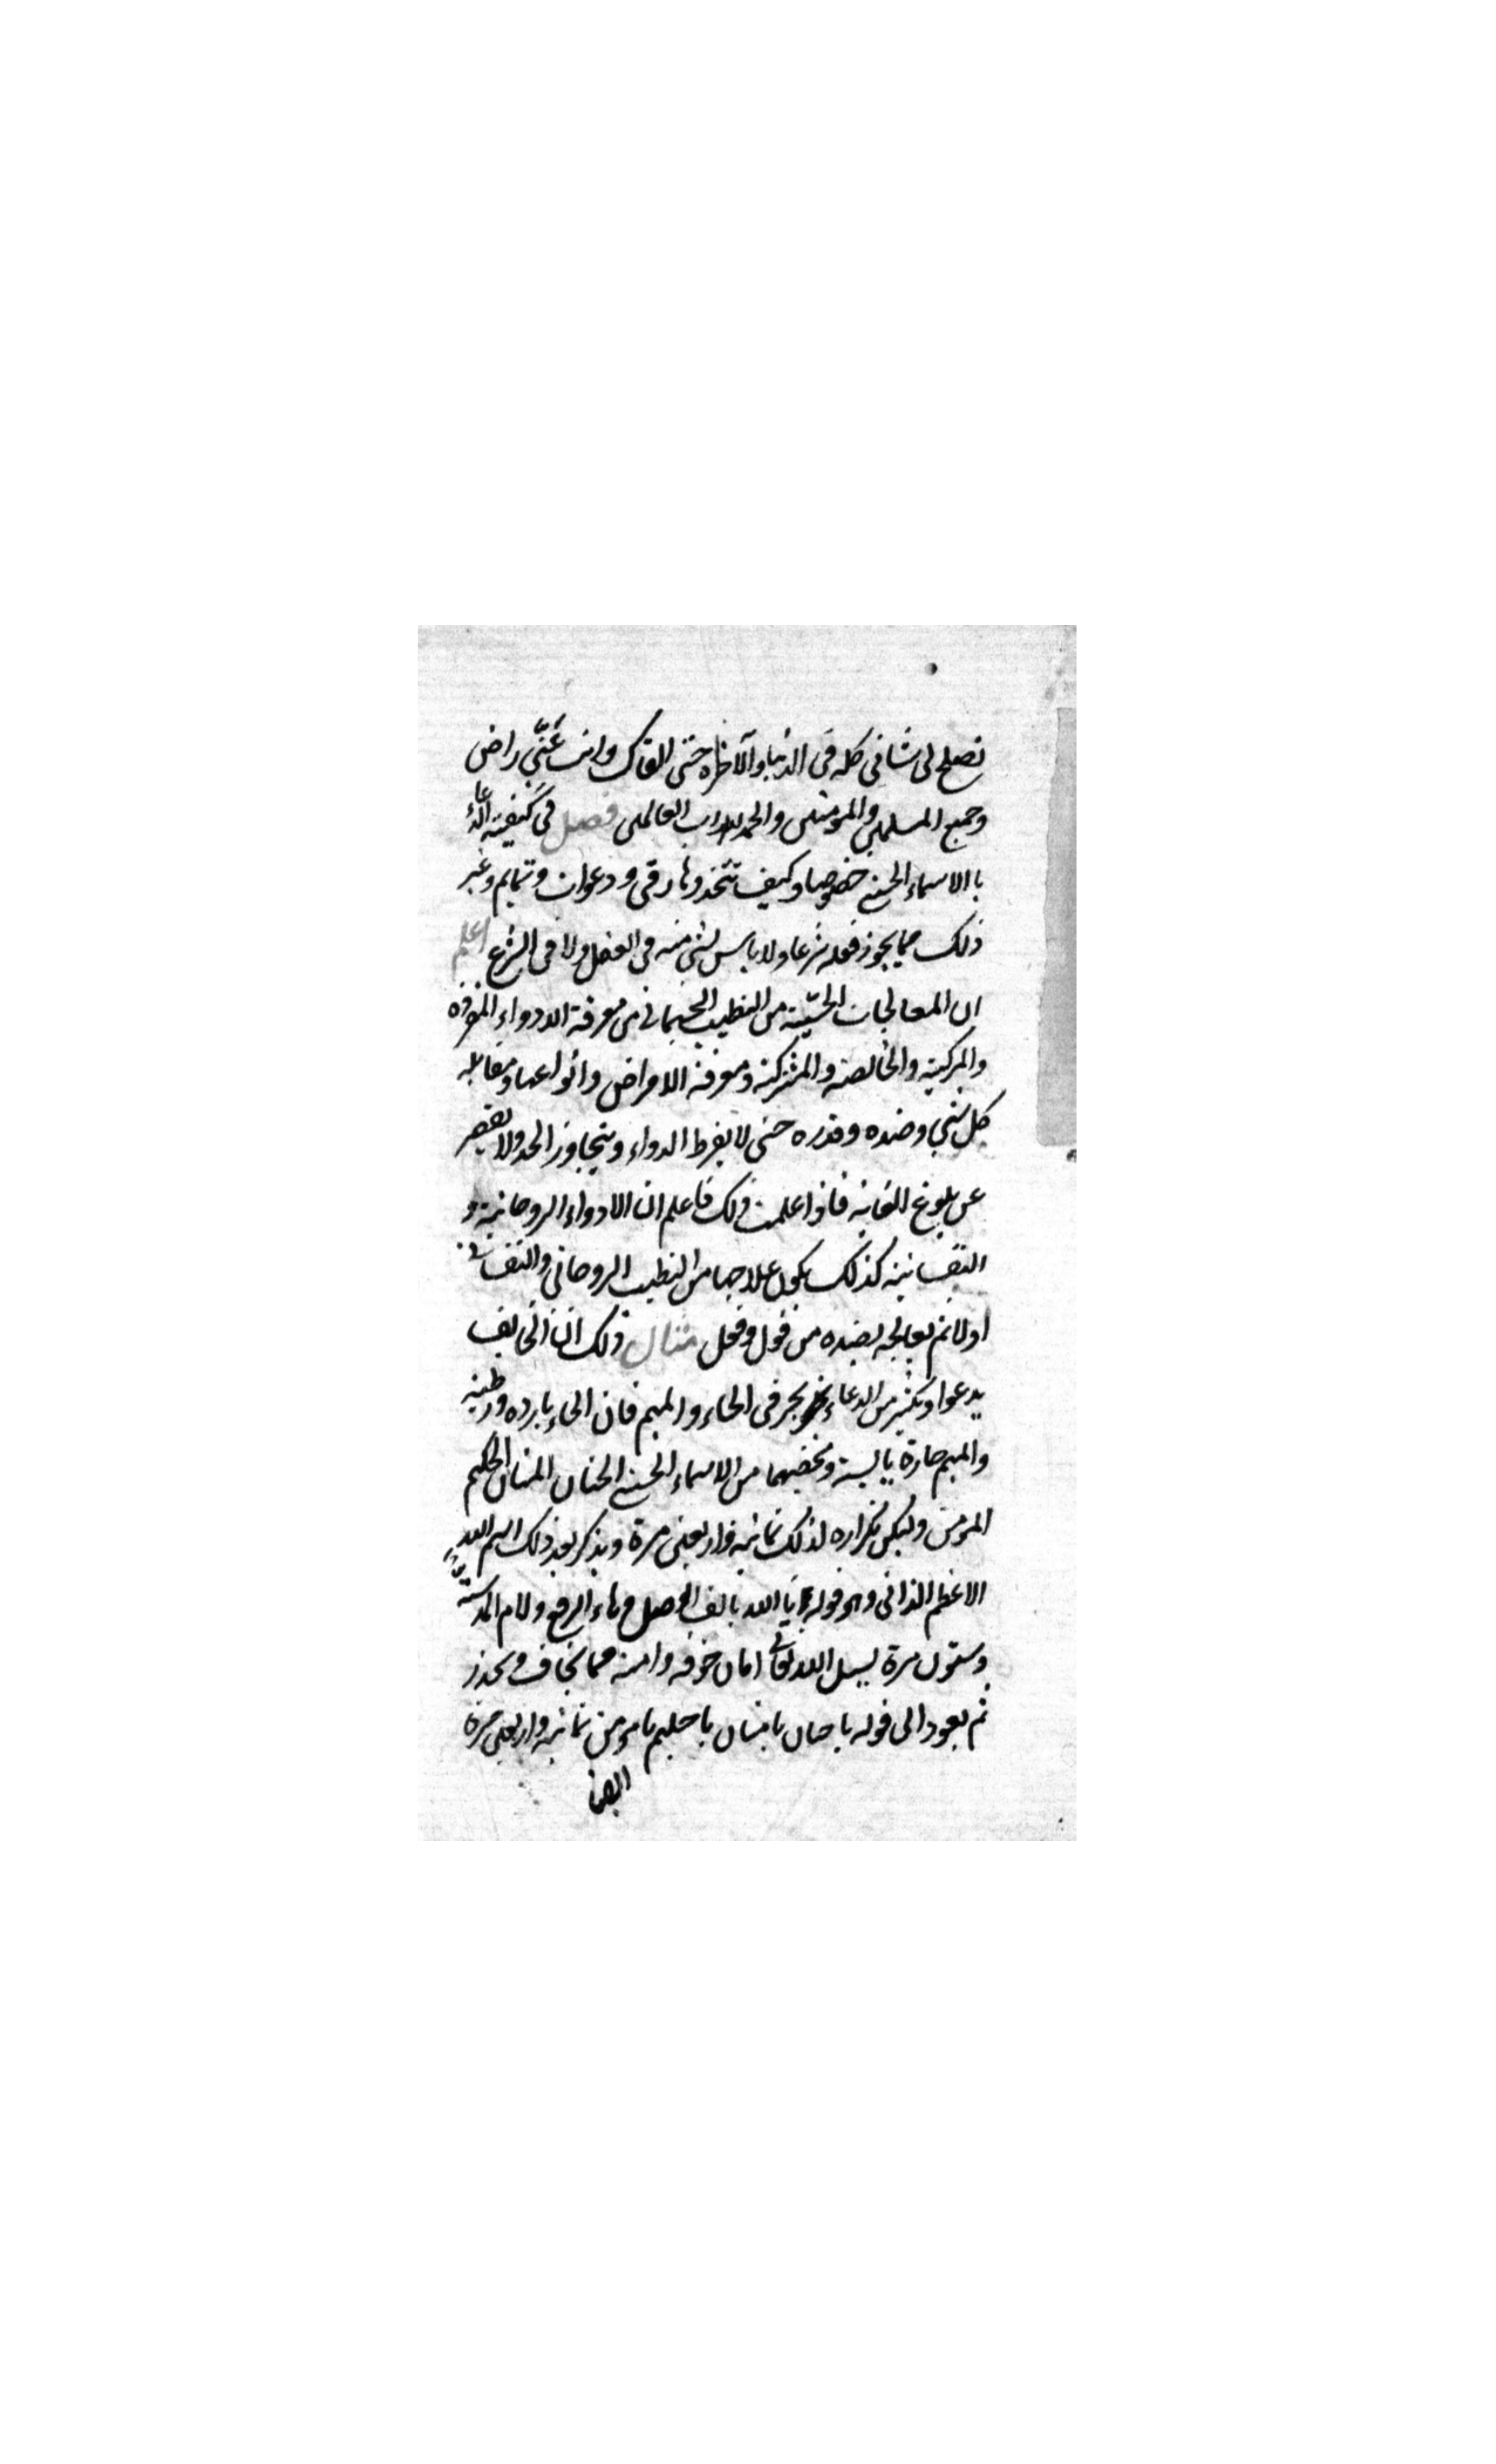 تصلح لى شانى كله فى الدنيا والآخرة حتى القاك وانت عنّى راض
وجميع المسلمين والمومنين والحمد لله رب العالمين فصل فى كيفية الدعا
بالاسماء الحسنى خصوصا وكيف تتخذونها رقى ودعوات وتمايم وغير
ذلك مما يجوز فعله شرعا ولا باس بشى منه فى العقل ولا فى الشرع اعلم
ان المعالجات الحسّية من التطبيب الجسمانى من معرفة الادواء المفرده
والمركبة والخالصة والمشتركة ومعرفة الامراض وانواعها ومقابلة
كل شى وضده وقدره حتى لا يفرط الدواء ويتجاوز الحد ولا يقصر
عن بلوغ الغاية فاذا علمت ذلك فاعلم ان الادواء الروحانية و
النفسانية كذلك يكون علاجها من التطبيب الروحانى والنفسانى
اولا ثم يعالجه بضده من قول وفعل مثال ذلك ان الخايف
يدعوا ويكثر من الدعاء بحرفى الحاء والميم فان الحاء بارده ورطبة
والميم حارة يابسة ويخصهما من الاسماء الحسنى الحنان المنان الحكيم
المومن وليكن تكراره لذلك ثمانية واربعين مرة ويذكر بعد ذلك اسم الله
الاعظم الذاتى وهو قوله يا الله بالف الوصل وهاء الرفع ولام المد ستة
وستون مرة يسيل الله تعالى امان خوفه وامنه مما يخاف ويحذر
ثم يعود الى قوله يا حنان يا منان يا حليم يا مومن ثمانية واربعين مرة
ايضا